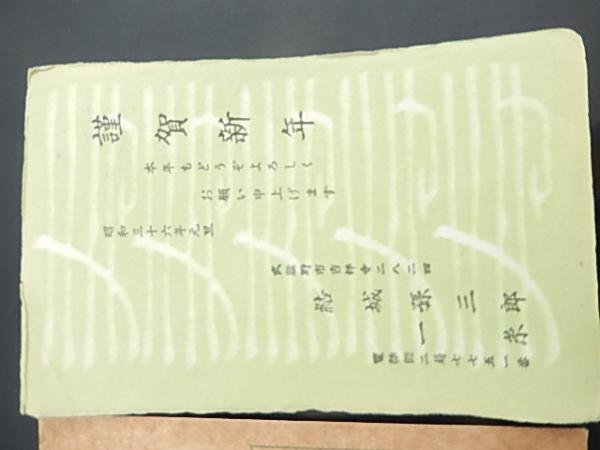 謹賀新年
本年もどうぞよろしく
お願い申上げます
昭和三十六年元旦
武蔵野市吉祥寺二八二四
結城孫三郎
一糸
電話二局七七五一番